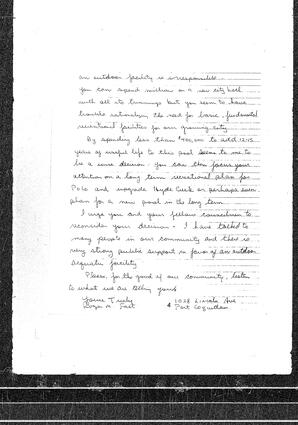 an outdoor facility is irresponsible.
you can spend millions on a new city hall
with all its trimmings but you seem to have
trouble rationalizing the need for basic, fundamental
recreational facilities for our growing city.
By spending less than $400,000 to add 12-15
years of useful life to this pool seems to me to
be a wise decision. You can then focus your
attention on a long term recreational plan for
PoCo and upgrade Hyde Creek or perhaps even
plan for a new pool in the long term.
I urge you and your fellow councilmen to
reconsider your decision - I have talked to
many people in our community and there is
very strong public support in favor of an outdoor
aquatic facility.
Please, for the good of our community, listen
to what we are telling you!
Yours Truly
1038 Lincoln Ave
Port Coquitlam